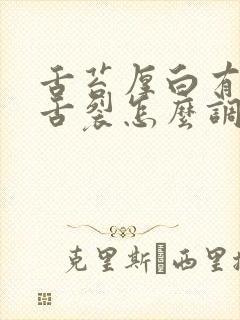 舌苔厚白有
舌裂怎麼調
克里斯 西里